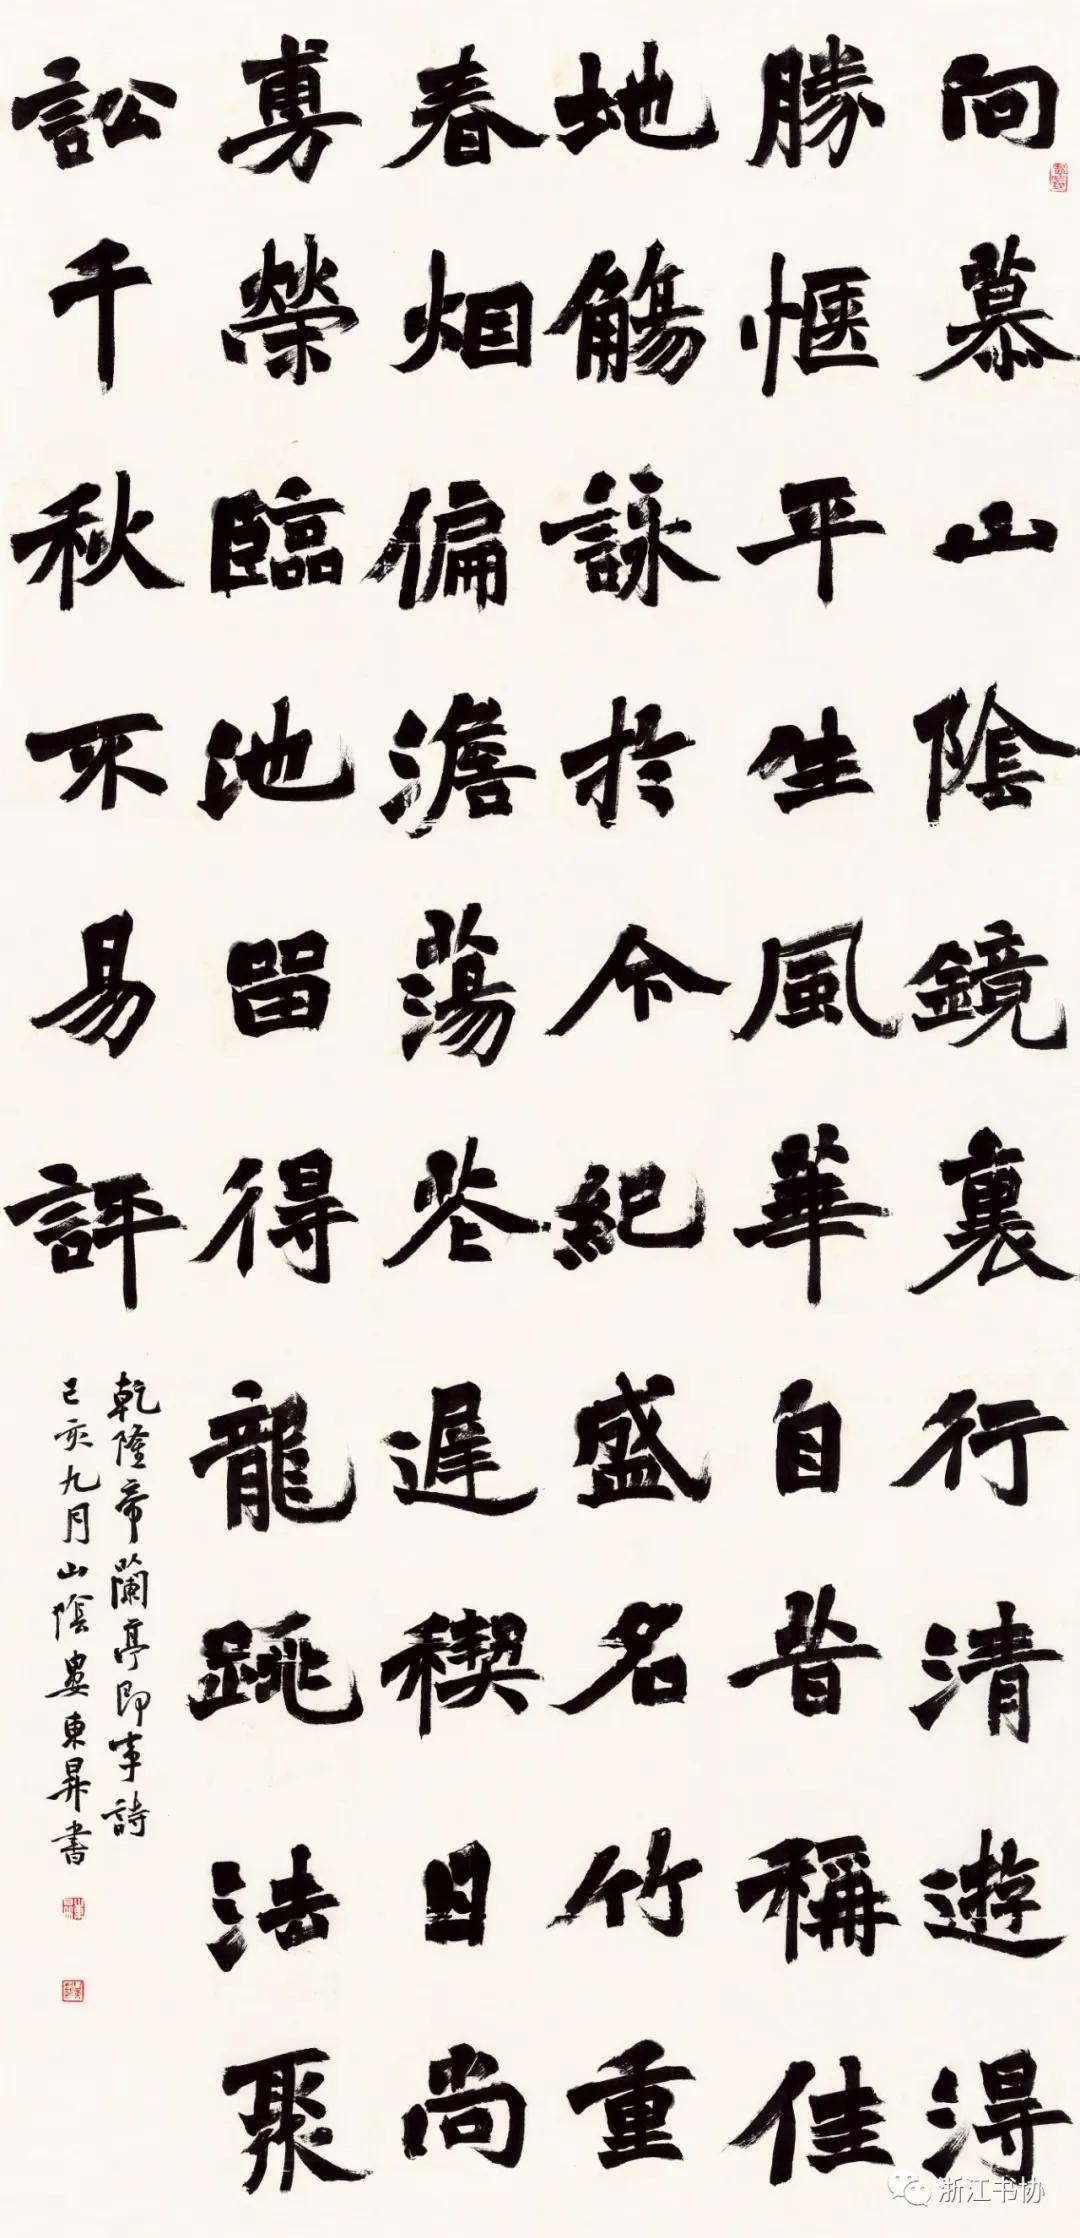 向慕山陰鏡裏行清遊得
勝愜平生風華自昔稱佳
地觴詠於今紀盛名竹重
春烟偏澹蕩花遲禊日尚
旉榮臨池留得龍跳法聚
訟千秋不易評
乾隆帝蘭亭即事詩
己亥九月山陰婁東昇書
浙江书协